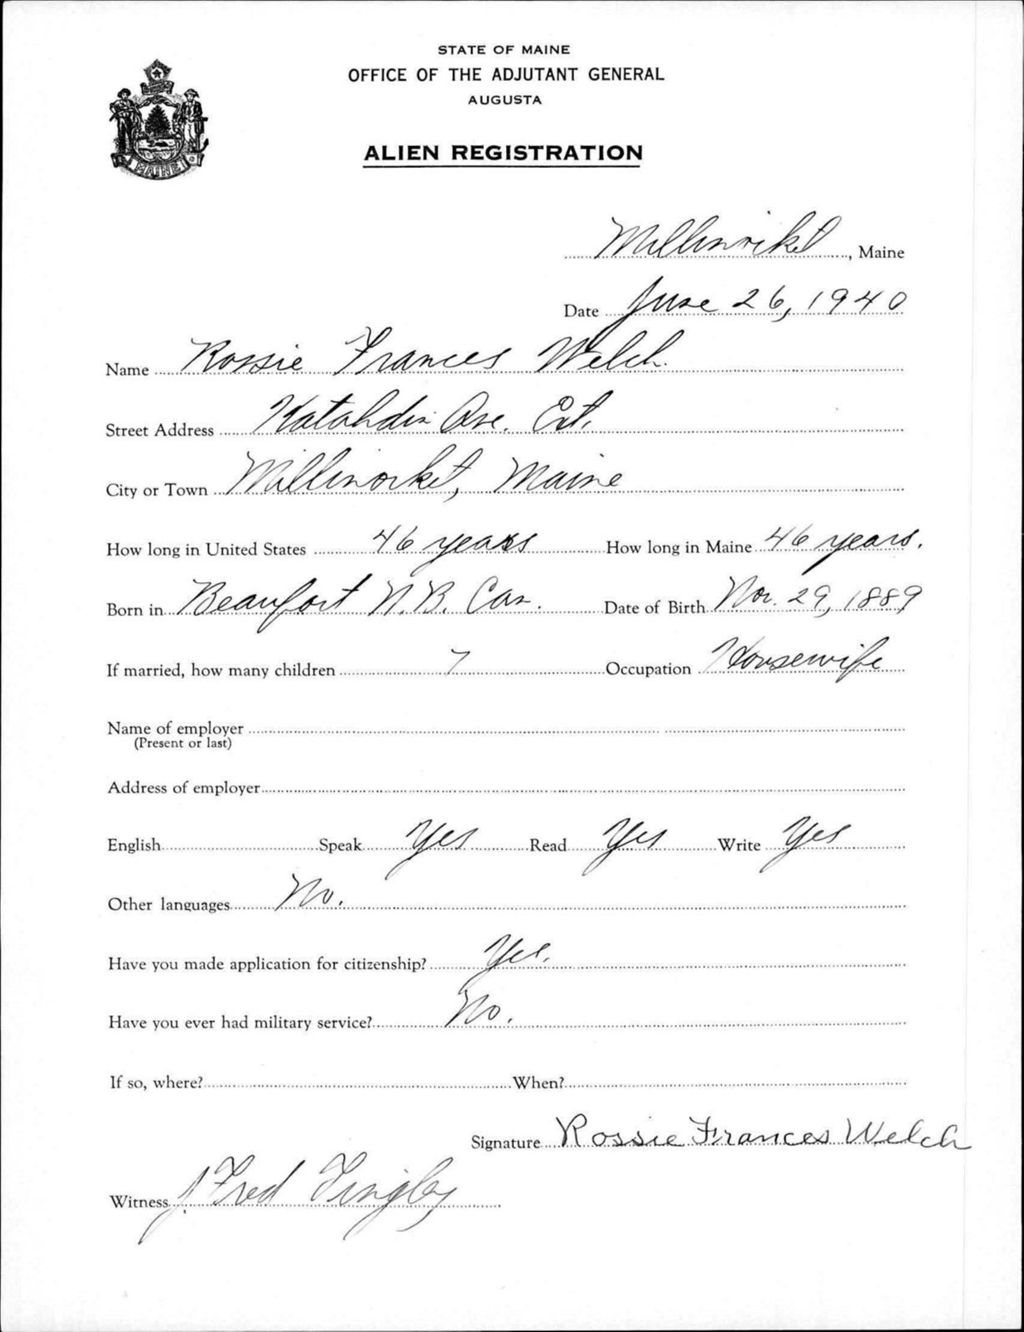 STATE OF MAINE
OFFICE OF THE ADJUTANT GENERAL
AUGUSTA
ALIEN REGISTRATION
MAINE
Millinocket, Maine
Date June 26, 1940
Name Rossie Frances Welch
Street Address Katahdin Ave. Ext.
City or Town Millinocket, Maine
How long in United States 46 years How long in Maine 46 years.
Born in Beaufort N.B. Can. Date of Birth Nov. 29, 1889
If married, how many children 7 Occupation Housewife
Name of employer
(Present or last)
Address of employer
English Speak Yes Read Yes Write Yes
Other languages No.
Have you made application for citizenship? Yes.
Have you ever had military service? No.
If so, where? When?
Signature Rossie Frances Welch
Witness J. Fred Tingley